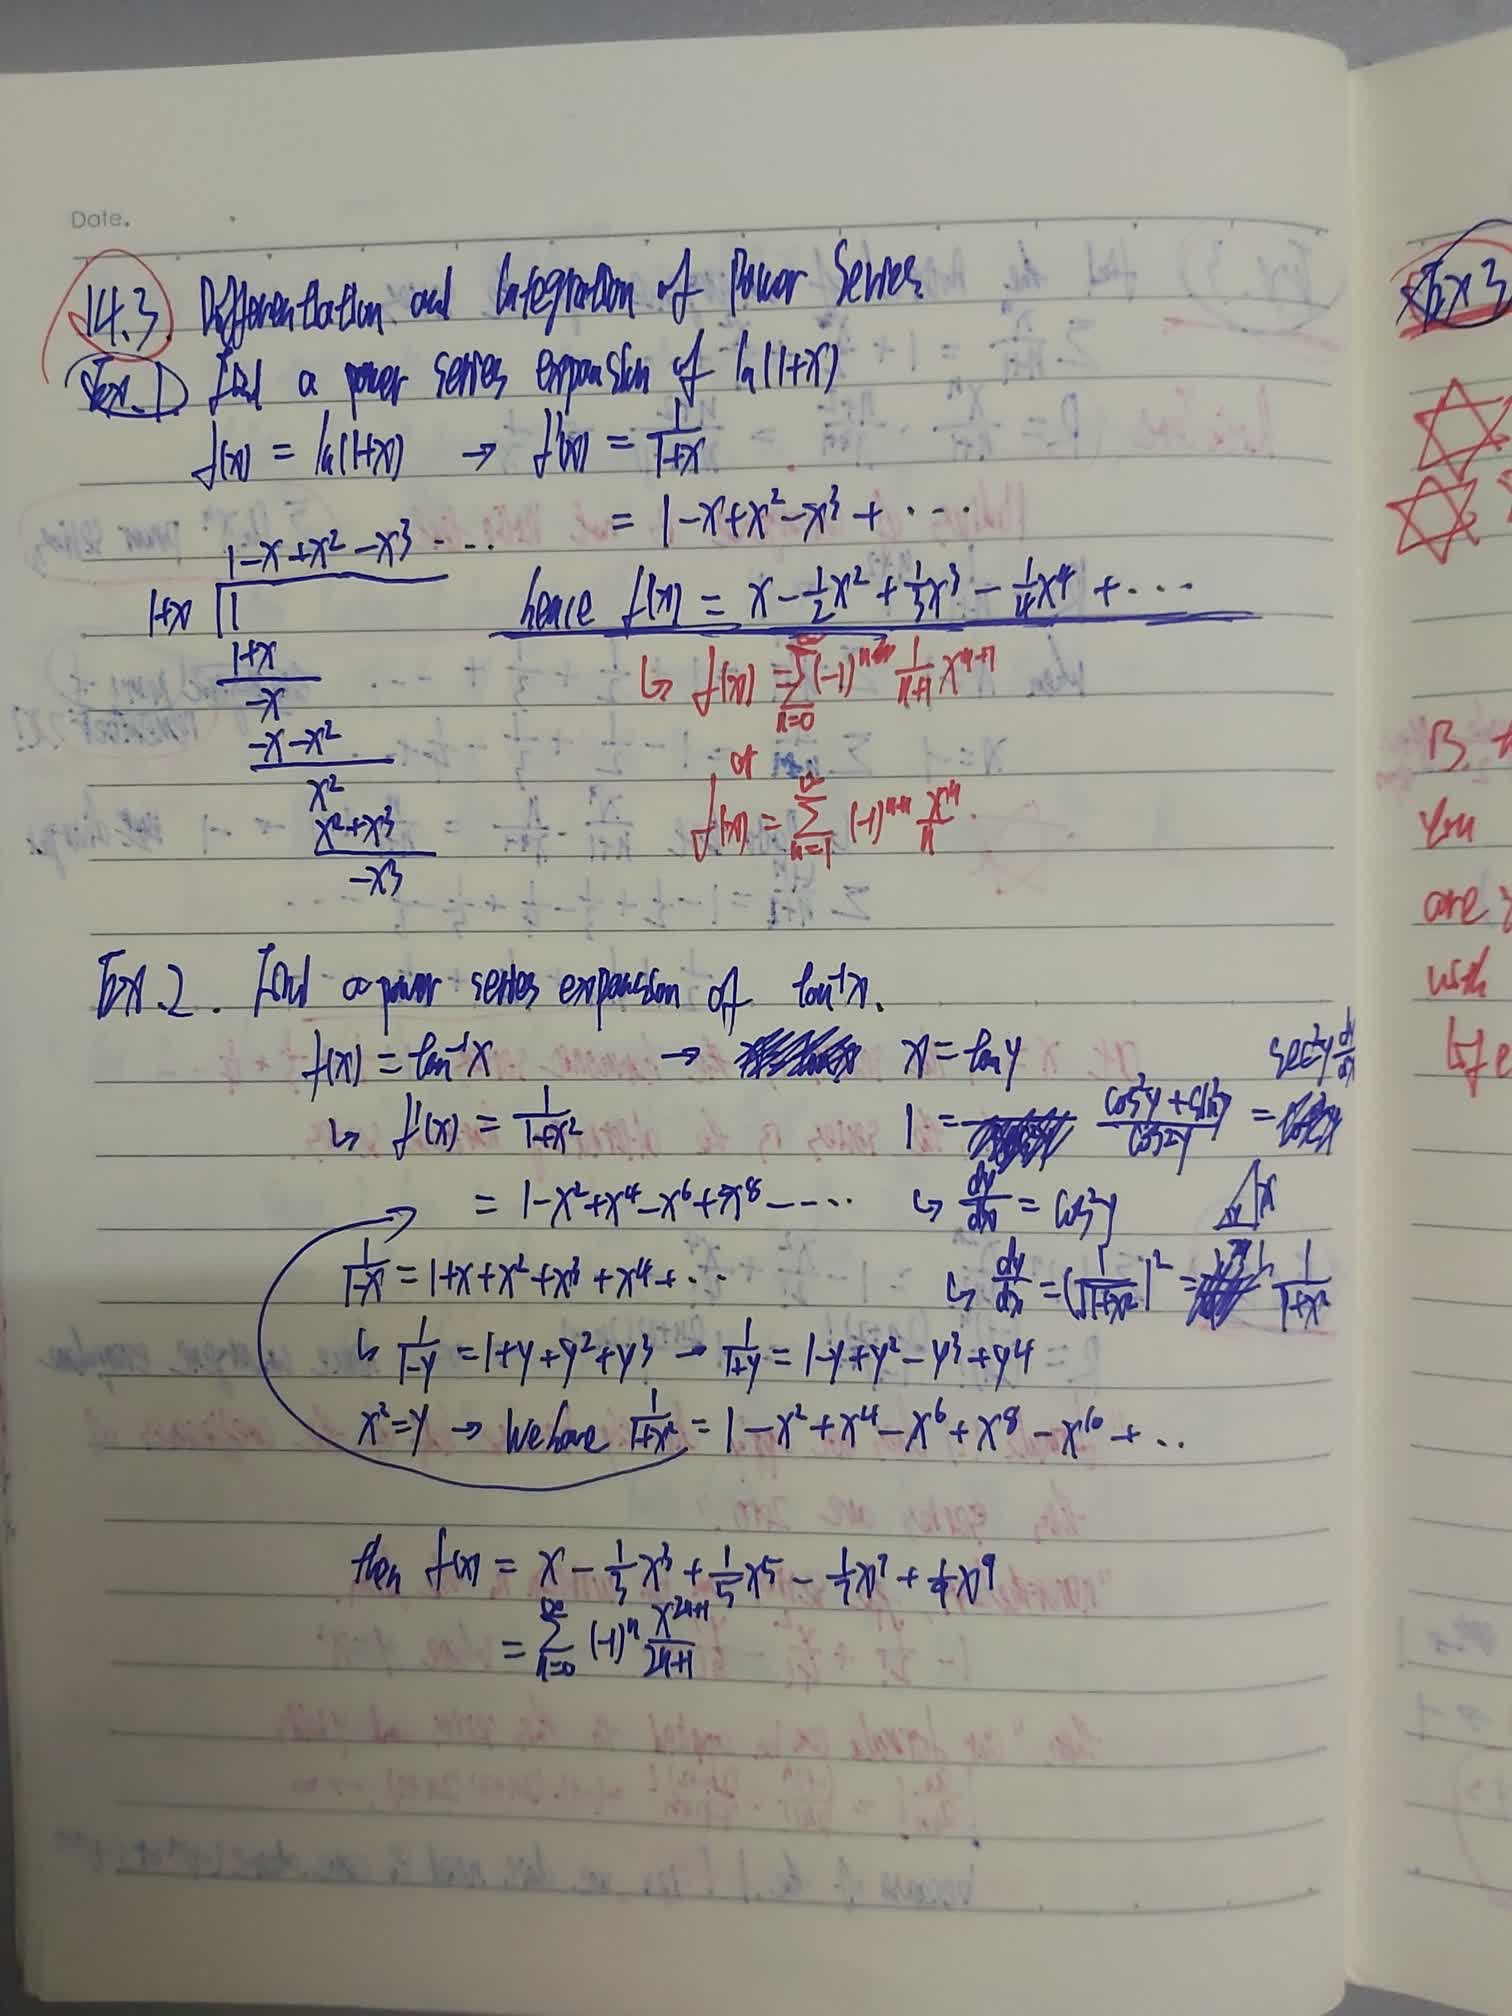 Date.
14.3. Differentiation and Integration of Power Series.
Ex.1) Find a power series expansion of ln(1+x)
f(x) = ln(1+x) → f'(x) = 1/(1+x)
= 1-x+x²-x³+ ···
1-x+x²-x³ ···
1+x 1
hence f(x) = x - 1/2 x² + 1/3 x³ - 1/4 x⁴ + ···
1+x
↳ f(x) = Σ n=0 (-1) 1/(n+1) x^(n+1)
-x
-x-x²
or
x²
f(x) = ∞ Σ n=1 (-1)^(n+1) xⁿ/n
x²+x³
-x³
Ex.2. Find a power series expansion of tan⁻¹x.
f(x) = tan⁻¹x → x = tan y sec²y dy/dx
↳ f'(x) = 1/(1+x²) 1 = (cos²y + sin²y)/cos²y =
= 1-x²+x⁴-x⁶+x⁸- ···· ↳ dy/dx = cos²y x
1/(1-x) = 1+x+x²+x³+x⁴+ ·· ↳ dy/dx = (1/√(1+x²))² = 1/(1+x²)
↳ 1/(1-y) = 1+y+y²+y³ → 1/(1+y) = 1-y+y²-y³+y⁴
x²=y → We have 1/(1+x²) = 1-x²+x⁴-x⁶+x⁸-x¹⁰+ ··
then f(x) = x - 1/3 x³ + 1/5 x⁵ - 1/7 x⁷ + 1/9 x⁹
= ∞ Σ n=0 (-1)ⁿ x^(2n+1)/(2n+1)
Ex 3
You
are
with